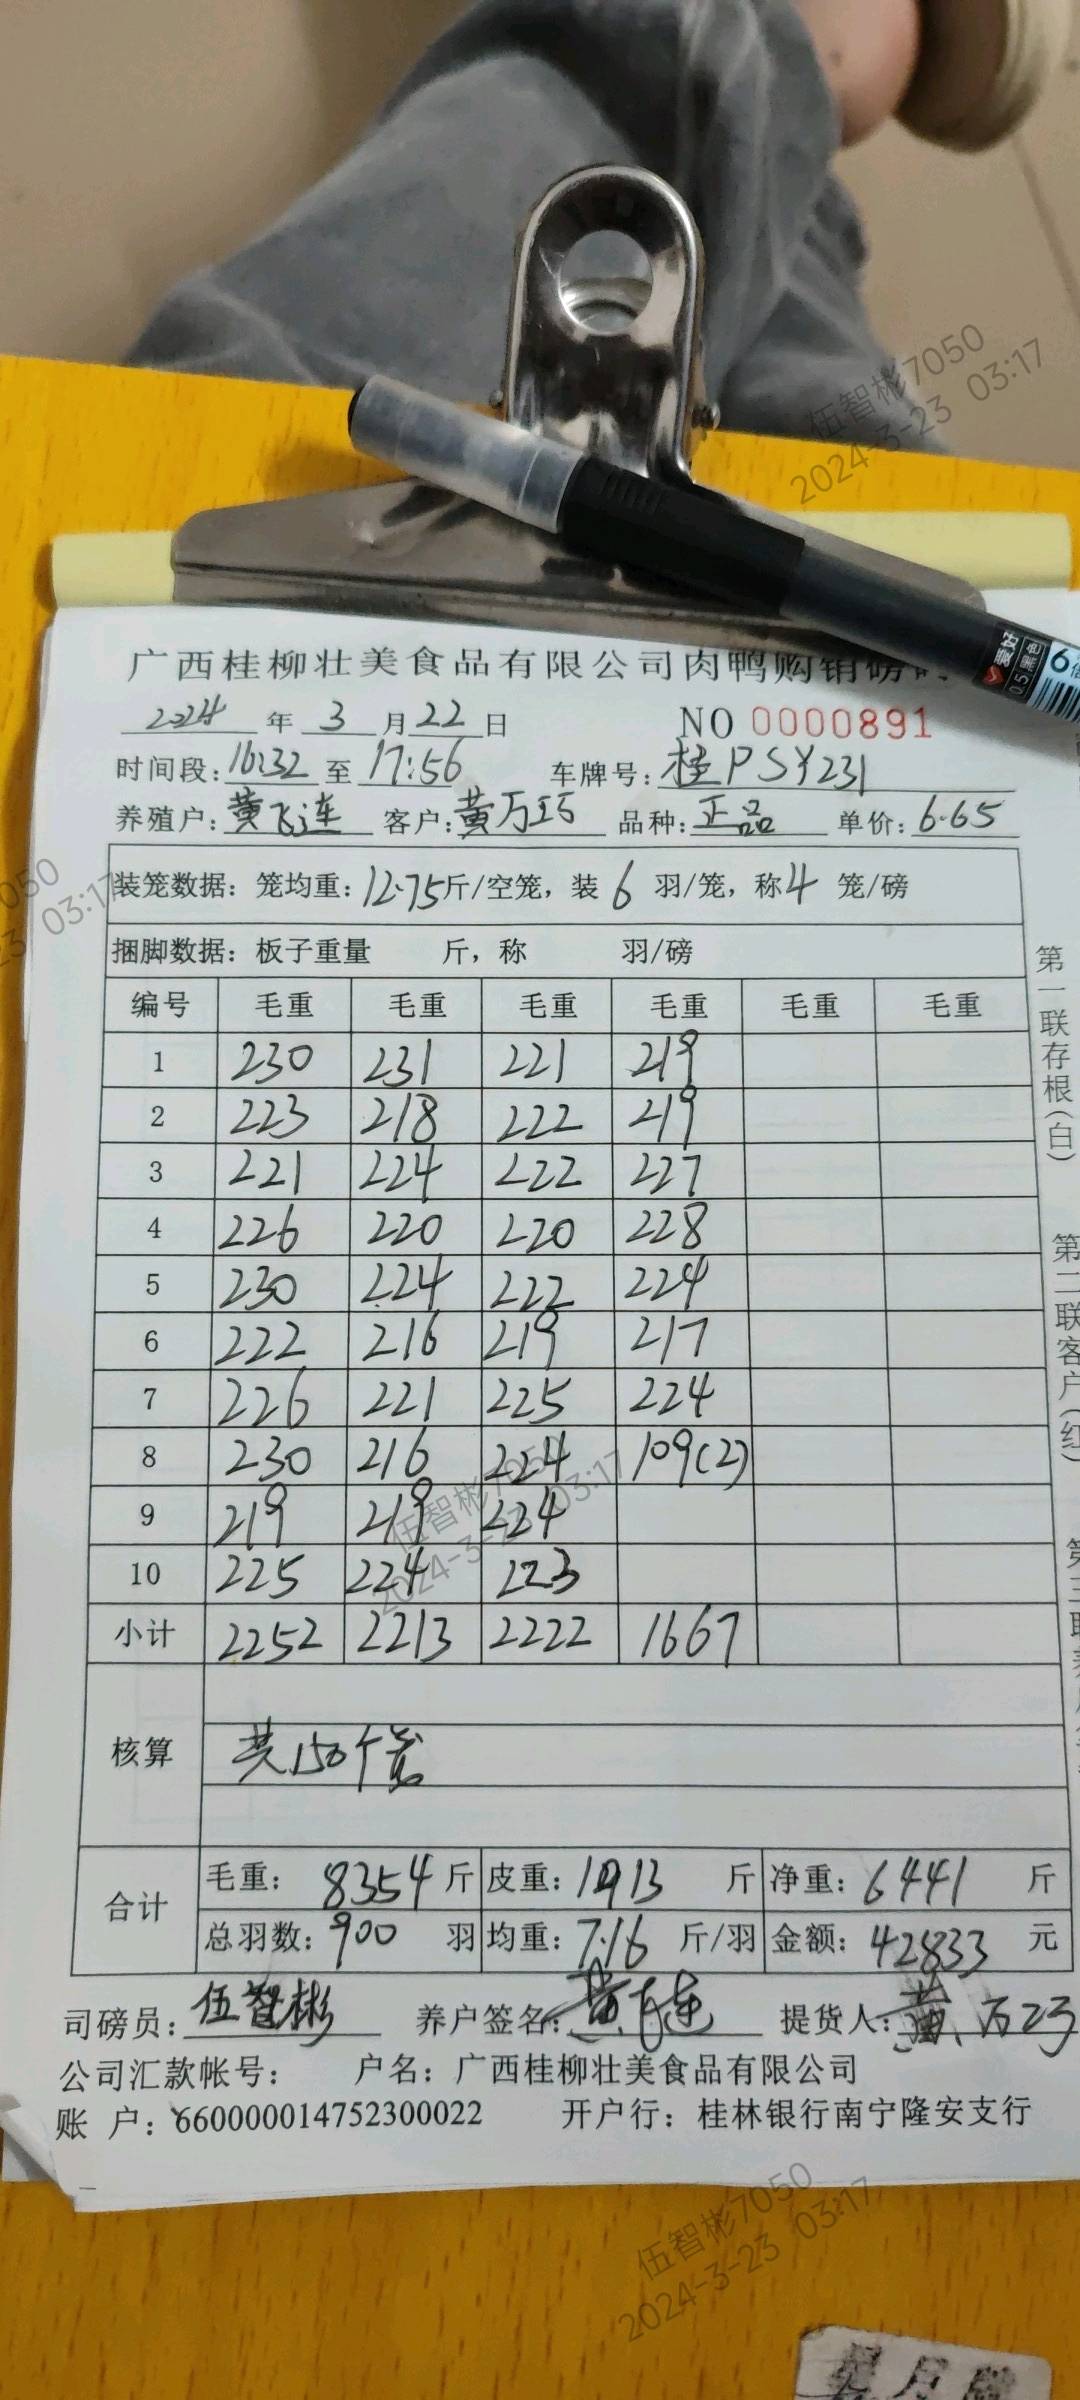 伍智彬7050
2024-3-23 03:17
爱好
0.5 黑色
6倍
广西桂柳壮美食品有限公司肉鸭购销磅
2024 年 3 月 22 日 NO 0000891
时间段: 16:32 至 17:56 车牌号: 桂PSY231
养殖户: 黄飞连 客户: 黄万巧 品种: 正品 单价: 6.65
装笼数据: 笼均重: 12.75 斤/空笼, 装 6 羽/笼, 称 4 笼/磅
捆脚数据: 板子重量 斤, 称 羽/磅
编号 毛重 毛重 毛重 毛重 毛重 毛重
1 230 231 221 219
2 223 218 222 219
3 221 224 222 227
4 226 220 220 228
5 230 224 222 224
6 222 216 219 217
7 226 221 225 224
8 230 216 224 109(2)
9 219 219 224
10 225 224 223
小计 2252 2213 2222 1667
核算 共150个笼
合计 毛重: 8354 斤 皮重: 1913 斤 净重: 6441 斤
总羽数: 900 羽 均重: 7.16 斤/羽 金额: 42833 元
司磅员: 伍智彬 养户签名: 黄飞连 提货人: 黄万巧
公司汇款帐号: 户名: 广西桂柳壮美食品有限公司
账 户: 660000014752300022 开户行: 桂林银行南宁隆安支行
第一联存根(白)
第二联客户(红)
第三联养
050
23 03:17
伍智彬7050
2024-3-23 03:17
伍智彬7050
2024-3-23 03:17